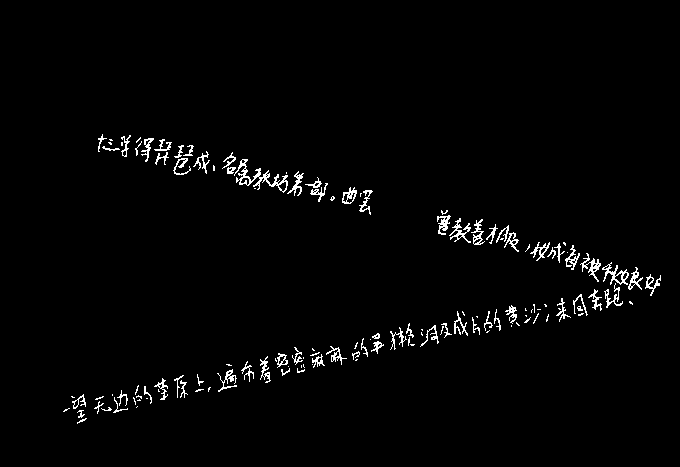 十三学得琵琶成、名属教坊第部。曲罢
曾教善才服，妆成每被秋娘妒
一望无边的草原上，遍布着密密麻麻的旱獭洞及成片的黄沙；来回奔跑、